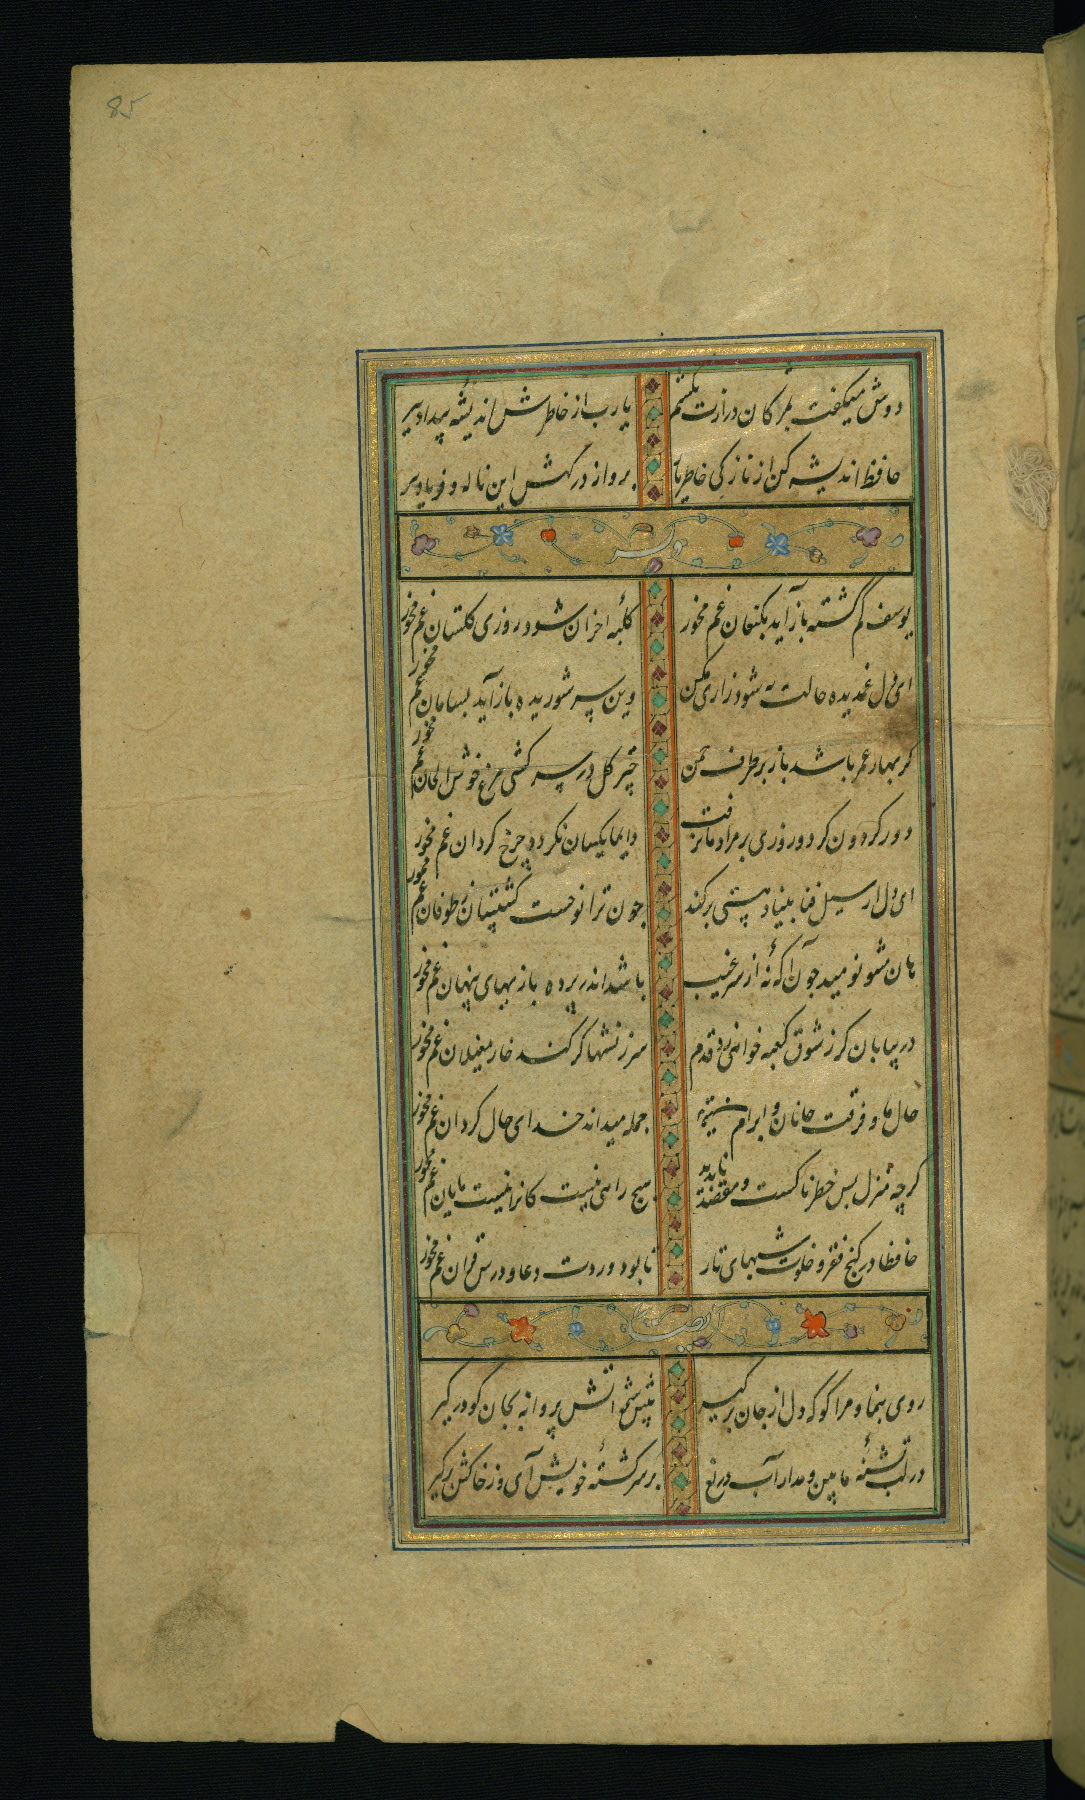 85
دوش میکفت بمژکان درازت بکشم یارب از خاطرش اندیشه بیداد ببر
حافظ اندیشه کن از نازکی خاطر یار برو از درکهش این ناله و فریاد ببر
وله
یوسف کم کشته باز آید بکنعان غم مخور کلبه احزان شود روزی کلستان غم مخور
ای دل غمدیده حالت به شود زاری مکن وین سر شوریده باز آید بسامان غم مخور
کر بهار عمر باشد باز بر طرف چمن چتر کل در سر کشی مرغ خوش الحان غم مخور
دور کردون کر دو روزی بر مراد ما نرفت دایما یکسان نکردد چرخ کردان غم مخور
ای دل ار سیل فنا بنیاد هستی برکند چون ترا نوحست کشتیبان ز طوفان غم مخور
هان مشو نومید چون آکه نه از سر غیب باشد اندر پرده بازیهای پنهان غم مخور
در بیابان کر ز شوق کعبه خواهی زد قدم سرزنشها کر کند خار مغیلان غم مخور
حال ما و فرقت جانان و ابرام رقیب جمله میداند خدای حال کردان غم مخور
کرچه منزل بس خطرناکست و مقصد ناپدید هیچ راهی نیست کانرا نیست پایان غم مخور
حافظا در کنج فقر و خلوت شبهای تار تا بود وردت دعا و درس قران غم مخور
ایضا
روی بنما و مرا کو که دل از جان برکیر پیش شمع آتش پروانه بجان کو درکیر
در لب تشنه ما بین و مدار آب دریغ بر سر کشته خویش آی و ز خاکش برکیر